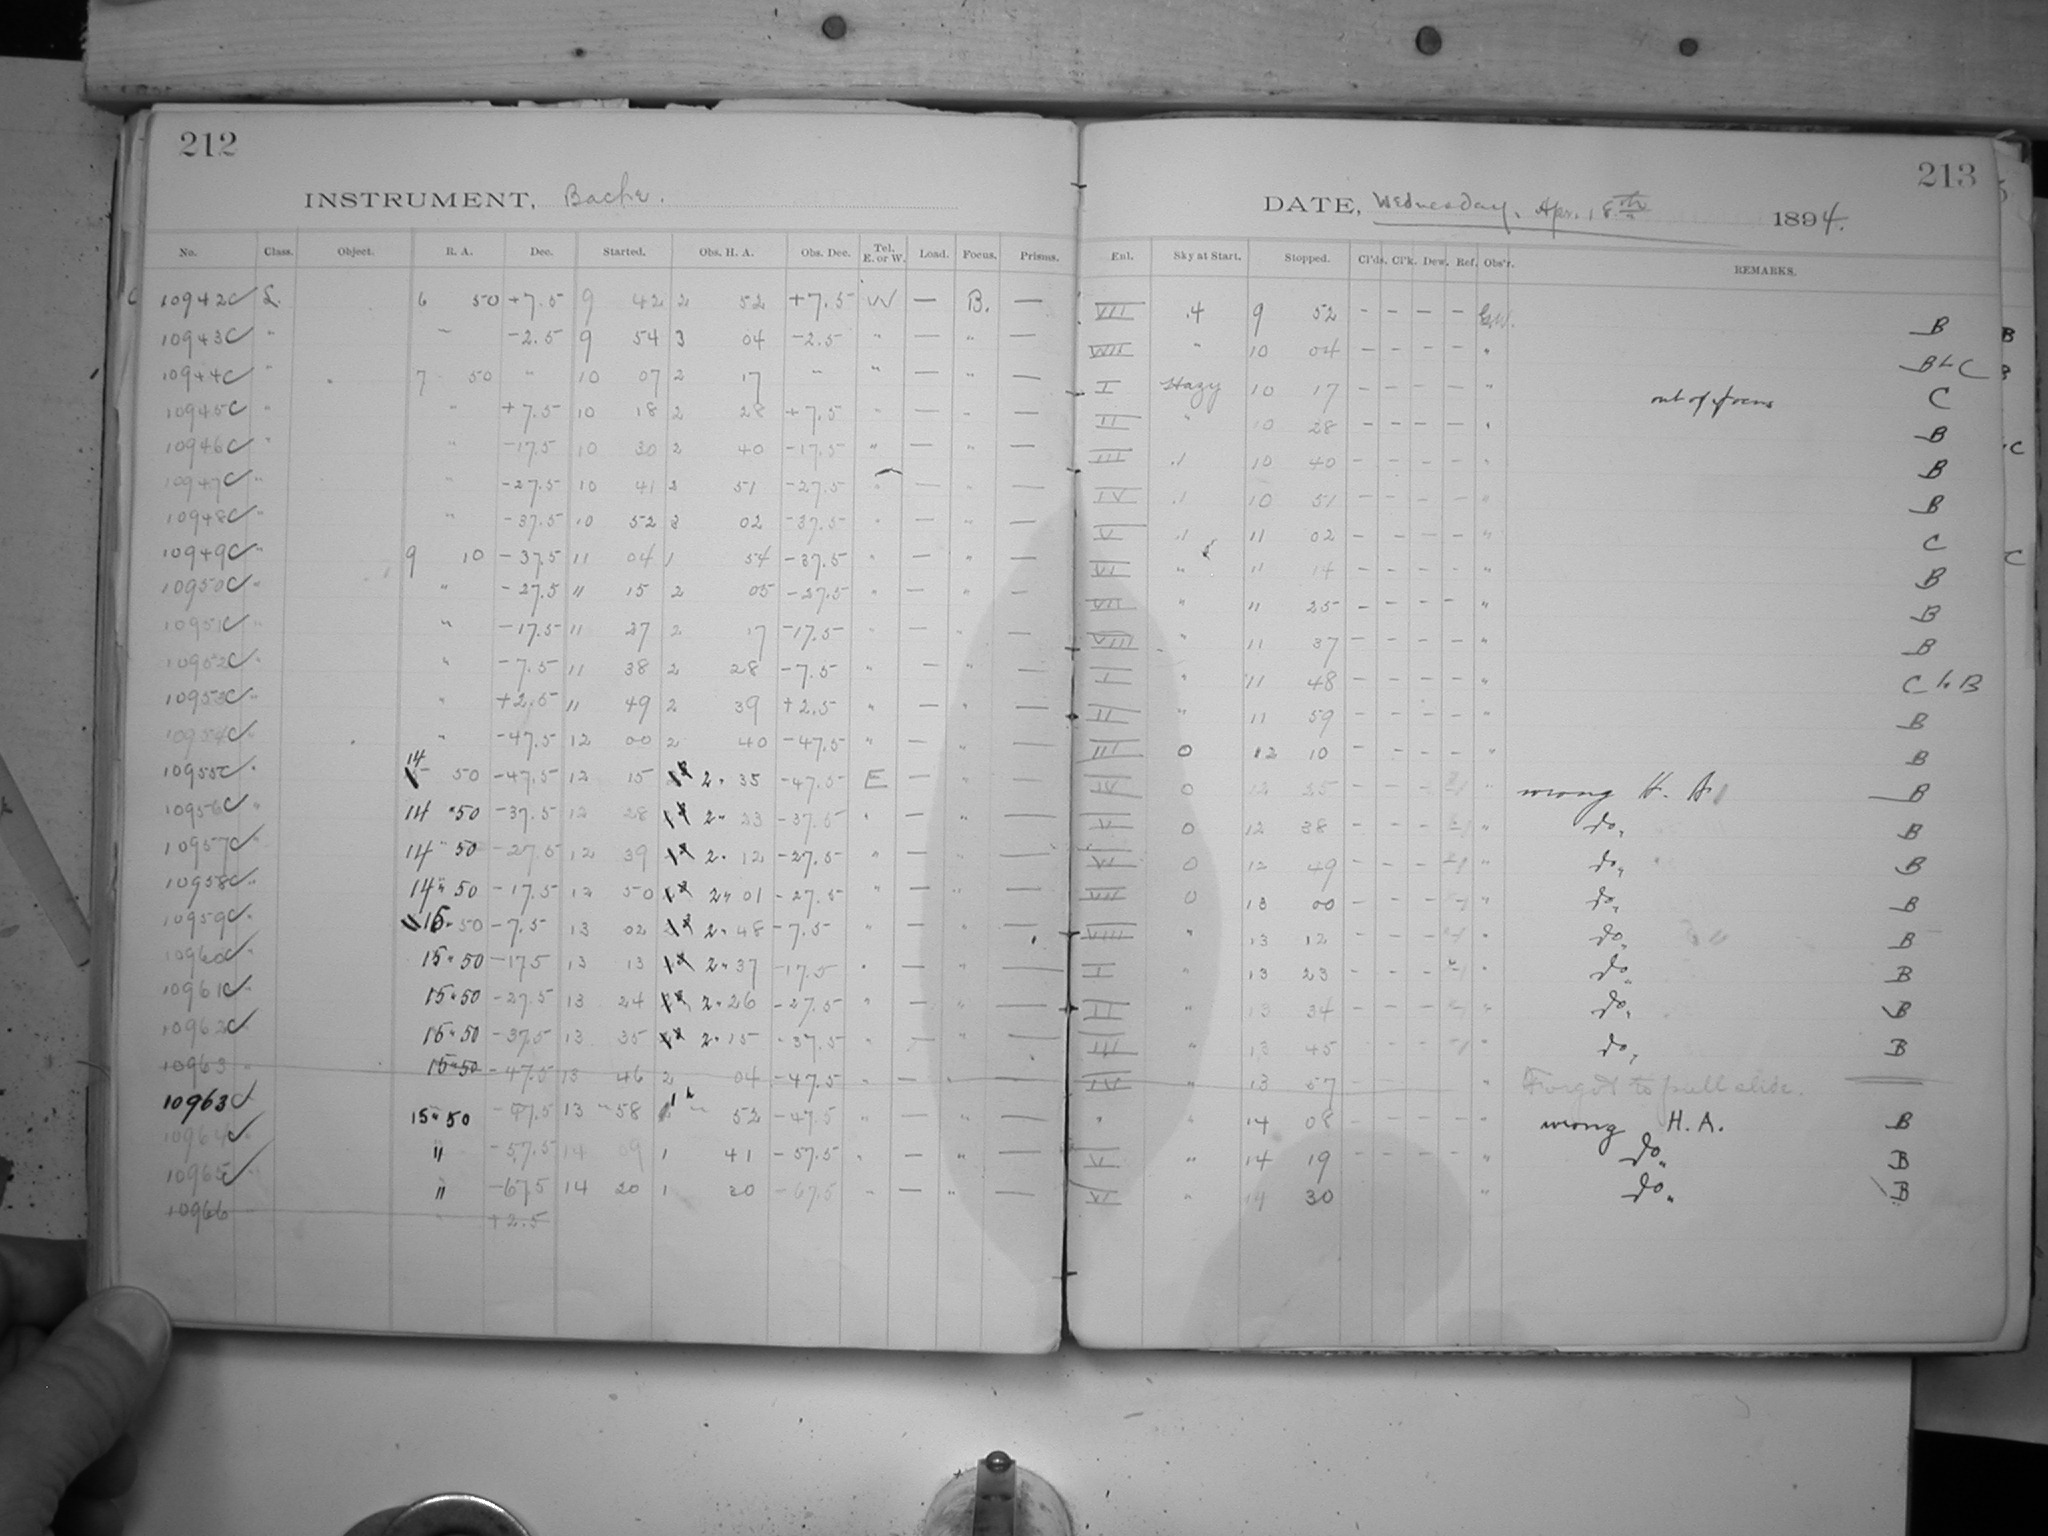 212
INSTRUMENT, Bache.
No. Class. Object. R. A. Dec. Started. Obs. H. A. Obs. Dec. Tel. E. or W. Load. Focus. Prisms.
10942C L. 6 50 +7.5 9 42 2 52 +7.5 W — B. —
10943C " " -2.5 9 54 3 04 -2.5 " — " —
10944C " 7 50 " 10 07 2 17 " " — " —
10945C " " +7.5 10 18 2 28 +7.5 " — " —
10946C " " -17.5 10 30 2 40 -17.5 " — " —
10947C " " -27.5 10 41 2 51 -27.5 " — " —
10948C " " -37.5 10 52 3 02 -37.5 " — " —
10949C " 9 10 -37.5 11 04 1 54 -37.5 " — " —
10950C " " -27.5 11 15 2 05 -27.5 " — " —
10951C " " -17.5 11 27 2 17 -17.5 " — " —
10952C " " -7.5 11 38 2 28 -7.5 " — " —
10953C " " +2.5 11 49 2 39 +2.5 " — " —
10954C " " -47.5 12 00 2 40 -47.5 " — " —
10955C " 14 50 -47.5 12 15 2 35 -47.5 E — " —
10956C " 14 50 -37.5 12 28 2 23 -37.5 " — " —
10957C " 14 50 -27.5 12 39 2 12 -27.5 " — " —
10958C " 14 50 -17.5 12 50 2 01 -27.5 " — " —
10959C " 15 50 -7.5 13 02 2 48 -7.5 " — " —
10960C " 15 50 -17.5 13 13 2 37 -17.5 " — " —
10961C " 15 50 -27.5 13 24 2 26 -27.5 " — " —
10962C " 15 50 -37.5 13 35 2 15 -37.5 " — " —
10963 " 15 50 -47.5 13 46 2 04 -47.5 " — " —
10963C 15 50 -47.5 13 58 1 52 -47.5 " — " —
10964C " -57.5 14 09 1 41 -57.5 " — " —
10965C " -67.5 14 20 1 30 -67.5 " — " —
10966 " +2.5
213
DATE, Wednesday, Apr. 18th 1894.
Enl. Sky at Start. Stopped. Cl'ds. Cl'k. Dew. Ref. Obs'r. REMARKS.
VII .4 9 52 - - - - B
VIII " 10 04 - - - - " B to C
I Hazy 10 17 - - - - " out of focus C
II " 10 28 - - - - " B
III .1 10 40 - - - - " B
IV .1 10 51 - - - - " B
V .1 11 02 - - - - " C
VI " 11 14 - - - - " B
VII " 11 25 - - - - " B
VIII " 11 37 - - - - " B
I " 11 48 - - - - " C to B
II " 11 59 - - - - " B
III 0 12 10 - - - - " B
IV 0 12 25 - - - " wrong H. A. B
V 0 12 38 - - - " do. B
VI 0 12 49 - - - " do. B
VII 0 13 00 - - - " do. B
VIII " 13 12 - - - " do. B
I " 13 23 - - - " do. B
II " 13 34 - - - " do. B
III " 13 45 - - - " do. B
IV " 13 57 - " Forgot to pull slide.
" " 14 08 - - - - " wrong H. A. B
V " 14 19 " do. B
VI " 14 30 " do. B